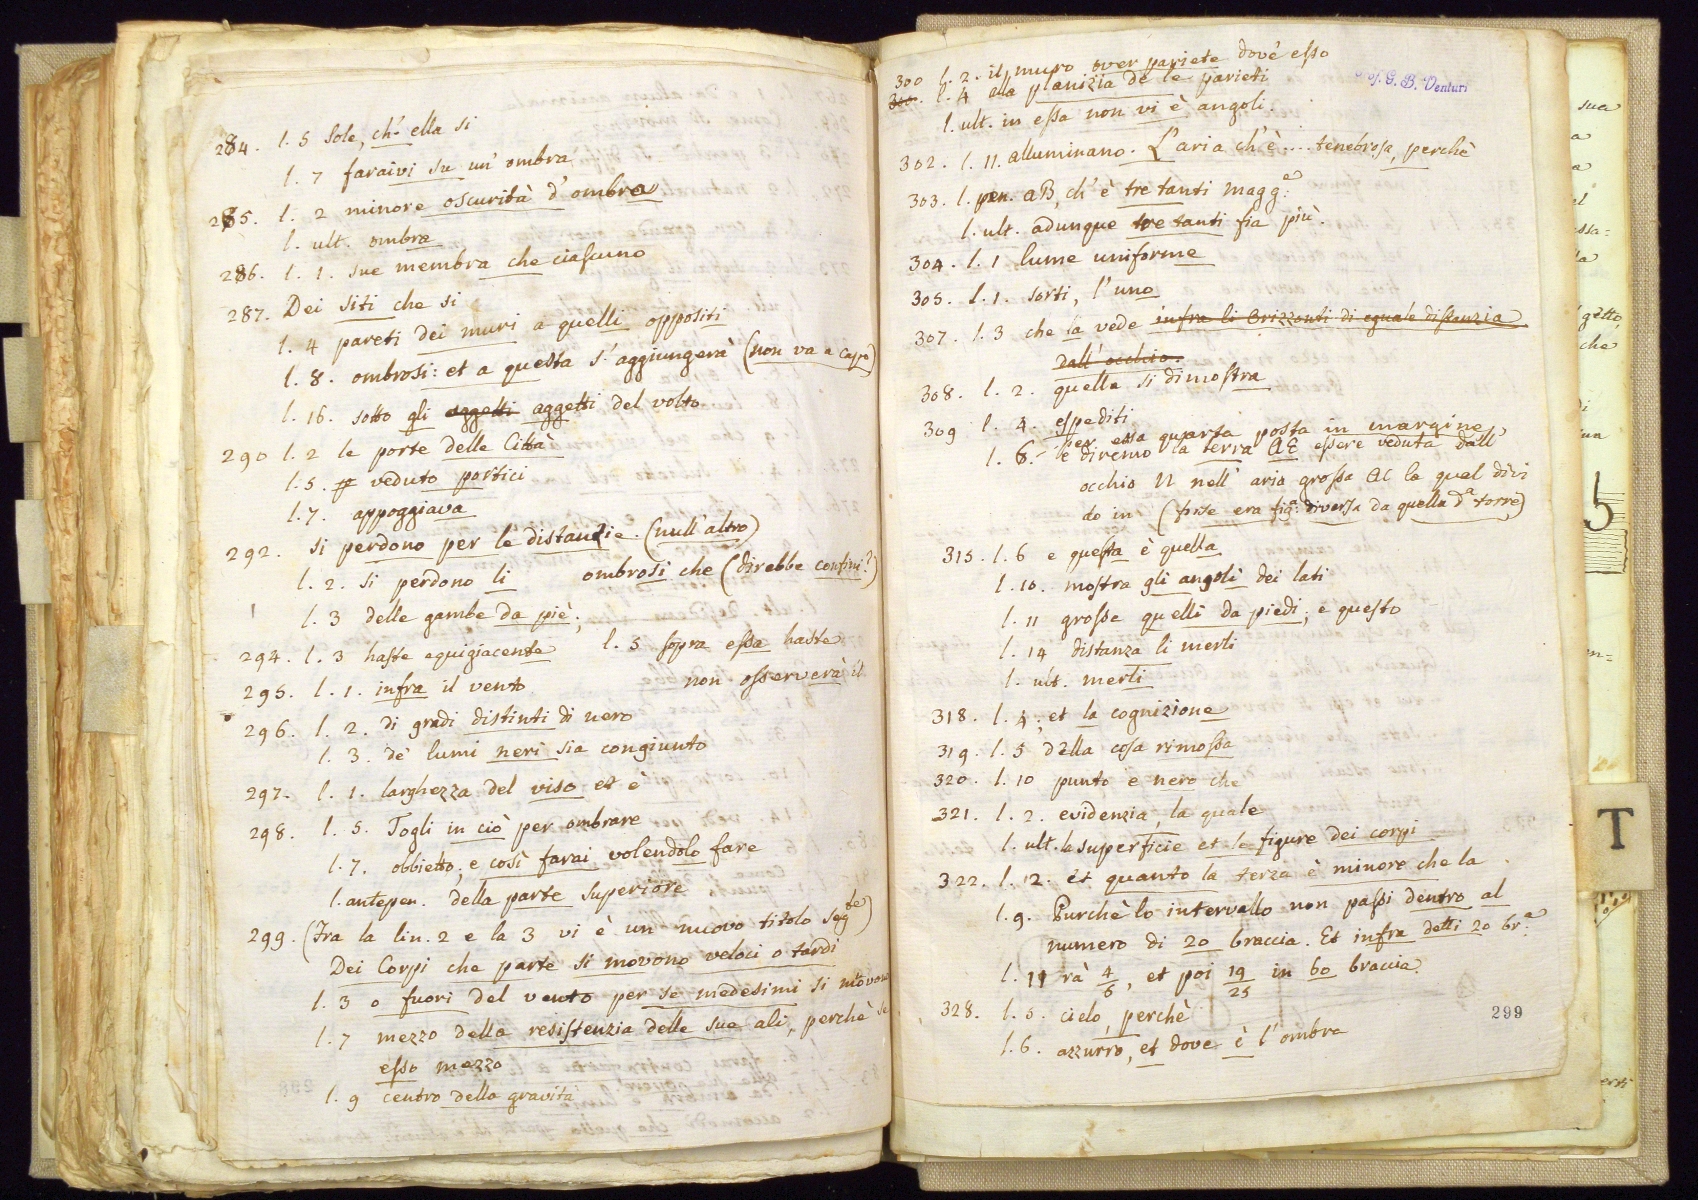 284. l. 5 Sole, ch'ella si
l. 7 faraivi su un' ombra
285. l. 2 minore oscurità d'ombra
l. ult. ombra
286. l. 1. sue membra che ciascuno
287. Dei siti che si
l. 4 pareti dei muri a quelli oppositi
l. 8. ombrosi: et a questa s'aggiungerà (non va a capo)
l. 16. sotto gli oggetti aggetti del volto
290 l. 2 le porte delle Città
l. 5. veduto portici
l. 7. appoggiava
292. si perdono per le distanzie. (null'altro)
l. 2. si perdono li ombrosi che (direbbe confini?)
l. 3 delle gambe da piè;
294. l. 3 haste equigiacente l. 5 sopra essa haste
295. l. 1. infra il vento non osserverà il
296. l. 2. di gradi distinti di nero
l. 3. de' lumi neri sia congiunto
297. l. 1. larghezza del viso et è
298. l. 5. Togli in ciò per ombrare
l. 7. obbietto, e così farai volendolo fare
l. antepen. della parte superiore
299. (Fra la lin. 2 e la 3 vi è un nuovo titolo segte)
Dei Corpi che parte si movono veloci o tardi
l. 3 o fuori del vento per se medesimi si movono
l. 7 mezzo della resistenzia delle sue ali, perchè se
esso mezzo
l. 9 centro della gravità
300 l. 2. il muro over pariete dov'è esso
l. 4 alla planizia de le parieti
l. ult. in essa non vi è angoli
Prof. G. B. Venturi
302. l. 11. alluminano. L'aria ch'è .... tenebrosa, perchè
303. l. pen. aB, ch'è tre tanti magg.e
l. ult. adunque tre tanti fia più.
304. l. 1 lume uniforme
305. l. 1. sorti, l'uno
307. l. 3 che la vede infra li Orizzonti di eguale distanzia
dall'occhio.
308. l. 2. quella si dimostra
309 l. 4. espediti
per essa quarta posta in margine,
l. 6. le diremo la terra AE essere veduta dall'
occhio N nell' aria grossa AC la qual divi
do in (forse era fig.a diversa da quella d.a torre)
315. l. 6 e questa è quella
l. 10. mostra gli angoli dei lati
l. 11 grosse quelli da piedi; e questo
l. 14 distanza li merli
l. ult. merli
318. l. 4; et la cognizione
319. l. 5 della cosa rimossa
320. l. 10 punto è nero che
321. l. 2. evidenzia, la quale
l. ult. la superficie et le figure dei corpi
322. l. 12. et quanto la terza è minore che la
l. 9. Purchè lo intervallo non passi dentro al
numero di 20 braccia. Et infra detti 20 br.a
l. 11 rà 4/5, et poi 19/25 in 60 braccia.
328. l. 5. cielo, perchè
299
l. 6. azzurro, et dove è l'ombra
sua
che
5
T